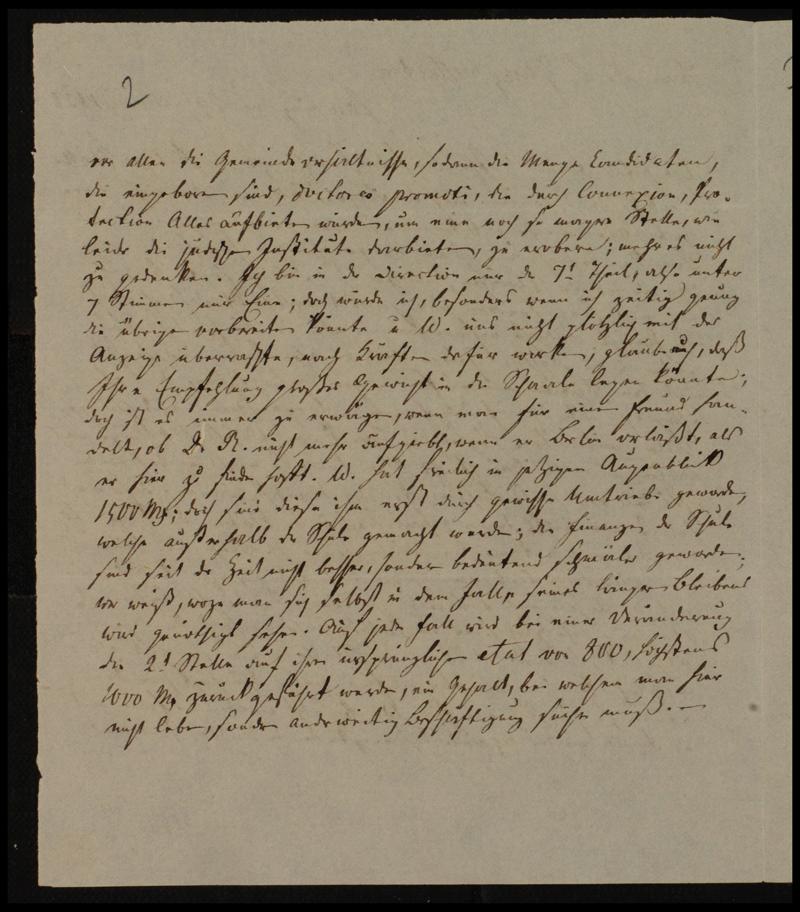 2
vor allen die Gemeindeverhältnisse, sodann die Menge Kandidaten,
die eingeboren sind, doctores promoti, die durch Connexion, Pro-
tection Alles aufbieten würden, um eine noch so magre Stelle, wie
leider die jüdischen Institute darbieten, zu erobern; mehres nicht
zu gedenken. Ich bin in der Direction nur der 7t Theil, also unter
7 Stimmen nur Eine; doch würde ich, besonders wenn ich zeitig genug
die übrigen vorbereiten könnte u W. uns nicht plötzlich mit der
Anzeige überraschte, nach Kräften dafür wirken, glaube auch, daß
Ihre Empfehlung großes Gewicht in die Schaale legen könnte;
doch ist es immer zu erwägen, wenn man für einen Freund han-
delt, ob Dr R. nicht mehr aufgiebt, wenn er Berlin verläßt, als
er hier zu finden hofft. W. hat freilich im jetzigen Augenblick
1500 Mk; doch sind diese ihm erst durch gewisse Umtriebe geworden,
welche außerhalb der Schule gemacht wurden; die Finanzen der Schule
sind seit der Zeit nicht besser, sondern bedeutend schmäler geworden;
wer weiß, wozu man sich selbst in dem Falle seines längern Bleibens
wird genöthigt sehen. Auf jeden Fall wird bei einer Veränderung
die 2t Stelle auf ihren ursprünglichen etat von 800, höchstens
1000 Mk zurückgeführt werden, ein Gehalt, bei welchem man hier
nicht leben, sondern anderweitig Beschäftigung suchen muß. —